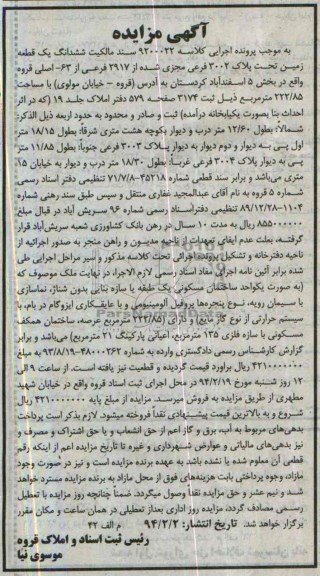 آگهی مزایده
به موجب پرونده اجرایی کلاسه ۹۲۰۰۰۲۲ سند مالکیت ششدانگ یک قطعه
زمین تحت پلاک ۳۰۰۲ فرعی مجزی شده از ۲۹۱۷ فرعی از ۶۳- اصلی قروه
واقع در بخش ۵ اسفندآباد کردستان به آدرس (قروه - خیابان مولوی) با مساحت
۲۲۲/۸۵ مترمربع ذیل ثبت ۳۱۷۴ صفحه ۵۷۹ دفتر املاک جلد ۱۹ (که در اثر
احداث بنا بصورت یکبابخانه درآمده) ثبت و صادر و محدود به حدود اربعه ذیل الذکر:
شمالاً: بطول ۱۲/۶۰ متر درب و دیوار بکوچه هشت متری شرقاً: بطول ۱۸/۱۵ متر
اول پی به دیوار و دوم دیوار به دیوار پلاک ۳۰۰۳ فرعی جنوباً: بطول ۱۱/۸۵ متر
پی به دیوار پلاک ۳۰۰۴ فرعی غرباً: بطول ۱۸/۳۰ متر درب و دیوار به خیابان ۱۵
متری می‌باشد و برابر سند قطعی شماره ۴۵۲۱۸-۷۱/۷/۸ تنظیمی دفتر اسناد رسمی
شماره ۵ قروه به نام آقای عبدالمجید غفاری منتقل و سپس طبق سند رهنی شماره
۱۱۰۴-۸۹/۱۲/۲۸ تنظیمی دفتراسناد رسمی شماره ۹۶ سریش آباد در قبال مبلغ
۸۵۵۰۰۰۰۰۰ ریال به مدت ۱۰ سال در رهن بانک کشاورزی شعبه سریش‌آباد قرار
گرفته، بعلت عدم ایفای تعهدات از ناحیه مدیون و راهن منجر به صدور اجرائیه از
ناحیه دفترخانه و تشکیل پرونده اجرائی تحت کلاسه مذکور و سیر مراحل اجرایی طی
شده برابر آئین نامه اجرای مفاد اسناد رسمی لازم الاجراء در نهایت ملک موصوف که
(به صورت یکواحد ساختمان مسکونی یک طبقه با سازه بنایی بدون شناژ، نماسازی
با سیمان رویه، نوع پنجره‌ها پروفیل آلومینیومی و با عایقکاری ایزوگام در بام، با
سیستم حرارتی از نوع گاز مایع) و دارای (۲۲۲/۸۵ مترمربع عرصه، ساختمان همکف
مسکونی با سازه فلزی ۱۳۵ مترمربع، اعیانی پارکینگ ۲۱ مترمربع) می‌باشد و برابر
گزارش کارشناس رسمی دادگستری وارده به شماره ۴۸۰۰۰۲۶۲-۹۳/۸/۱۹ به مبلغ
۴۲۱۰۰۰۰۰۰۰ ریال برآورد قیمت گردیده و قطعیت نیز یافته است. از ساعت ۹ الی
۱۲ روز شنبه مورخ ۹۴/۲/۱۹ در محل اجرای ثبت اسناد قروه واقع در خیابان شهید
مطهری از طریق مزایده به فروش میرسد. مزایده از مبلغ پایه ۴۲۱۰۰۰۰۰۰۰ ریال
شروع و به بالاترین قیمت پیشنهادی نقداً فروخته میشود. لازم بذکر است پرداخت
بدهی‌های مربوط به آب، برق و گاز اعم از حق انشعاب و یا حق اشتراک و مصرف و
نیز بدهی‌های مالیاتی و عوارض شهرداری و غیره تا تاریخ مزایده اعم از اینکه رقم
قطعی آن معلوم شده یا نشده باشد به عهده برنده مزایده است و نیز در صورت وجود
مازاد، وجوه پرداختی بابت هزینه‌های فوق از محل مازاد به برنده مزایده مسترد خواهد
شد و نیم عشر و حق مزایده نقداً وصول میگردد. ضمناً چنانچه روز مزایده با تعطیل
رسمی مصادف گردد، مزایده روز اداری بعداز تعطیلی در همان ساعت و مکان مقرر
برگزار خواهد شد. تاریخ انتشار: ۹۴/۲/۲ م الف ۴۲
رئیس ثبت اسناد و املاک قروه
موسوی نیا